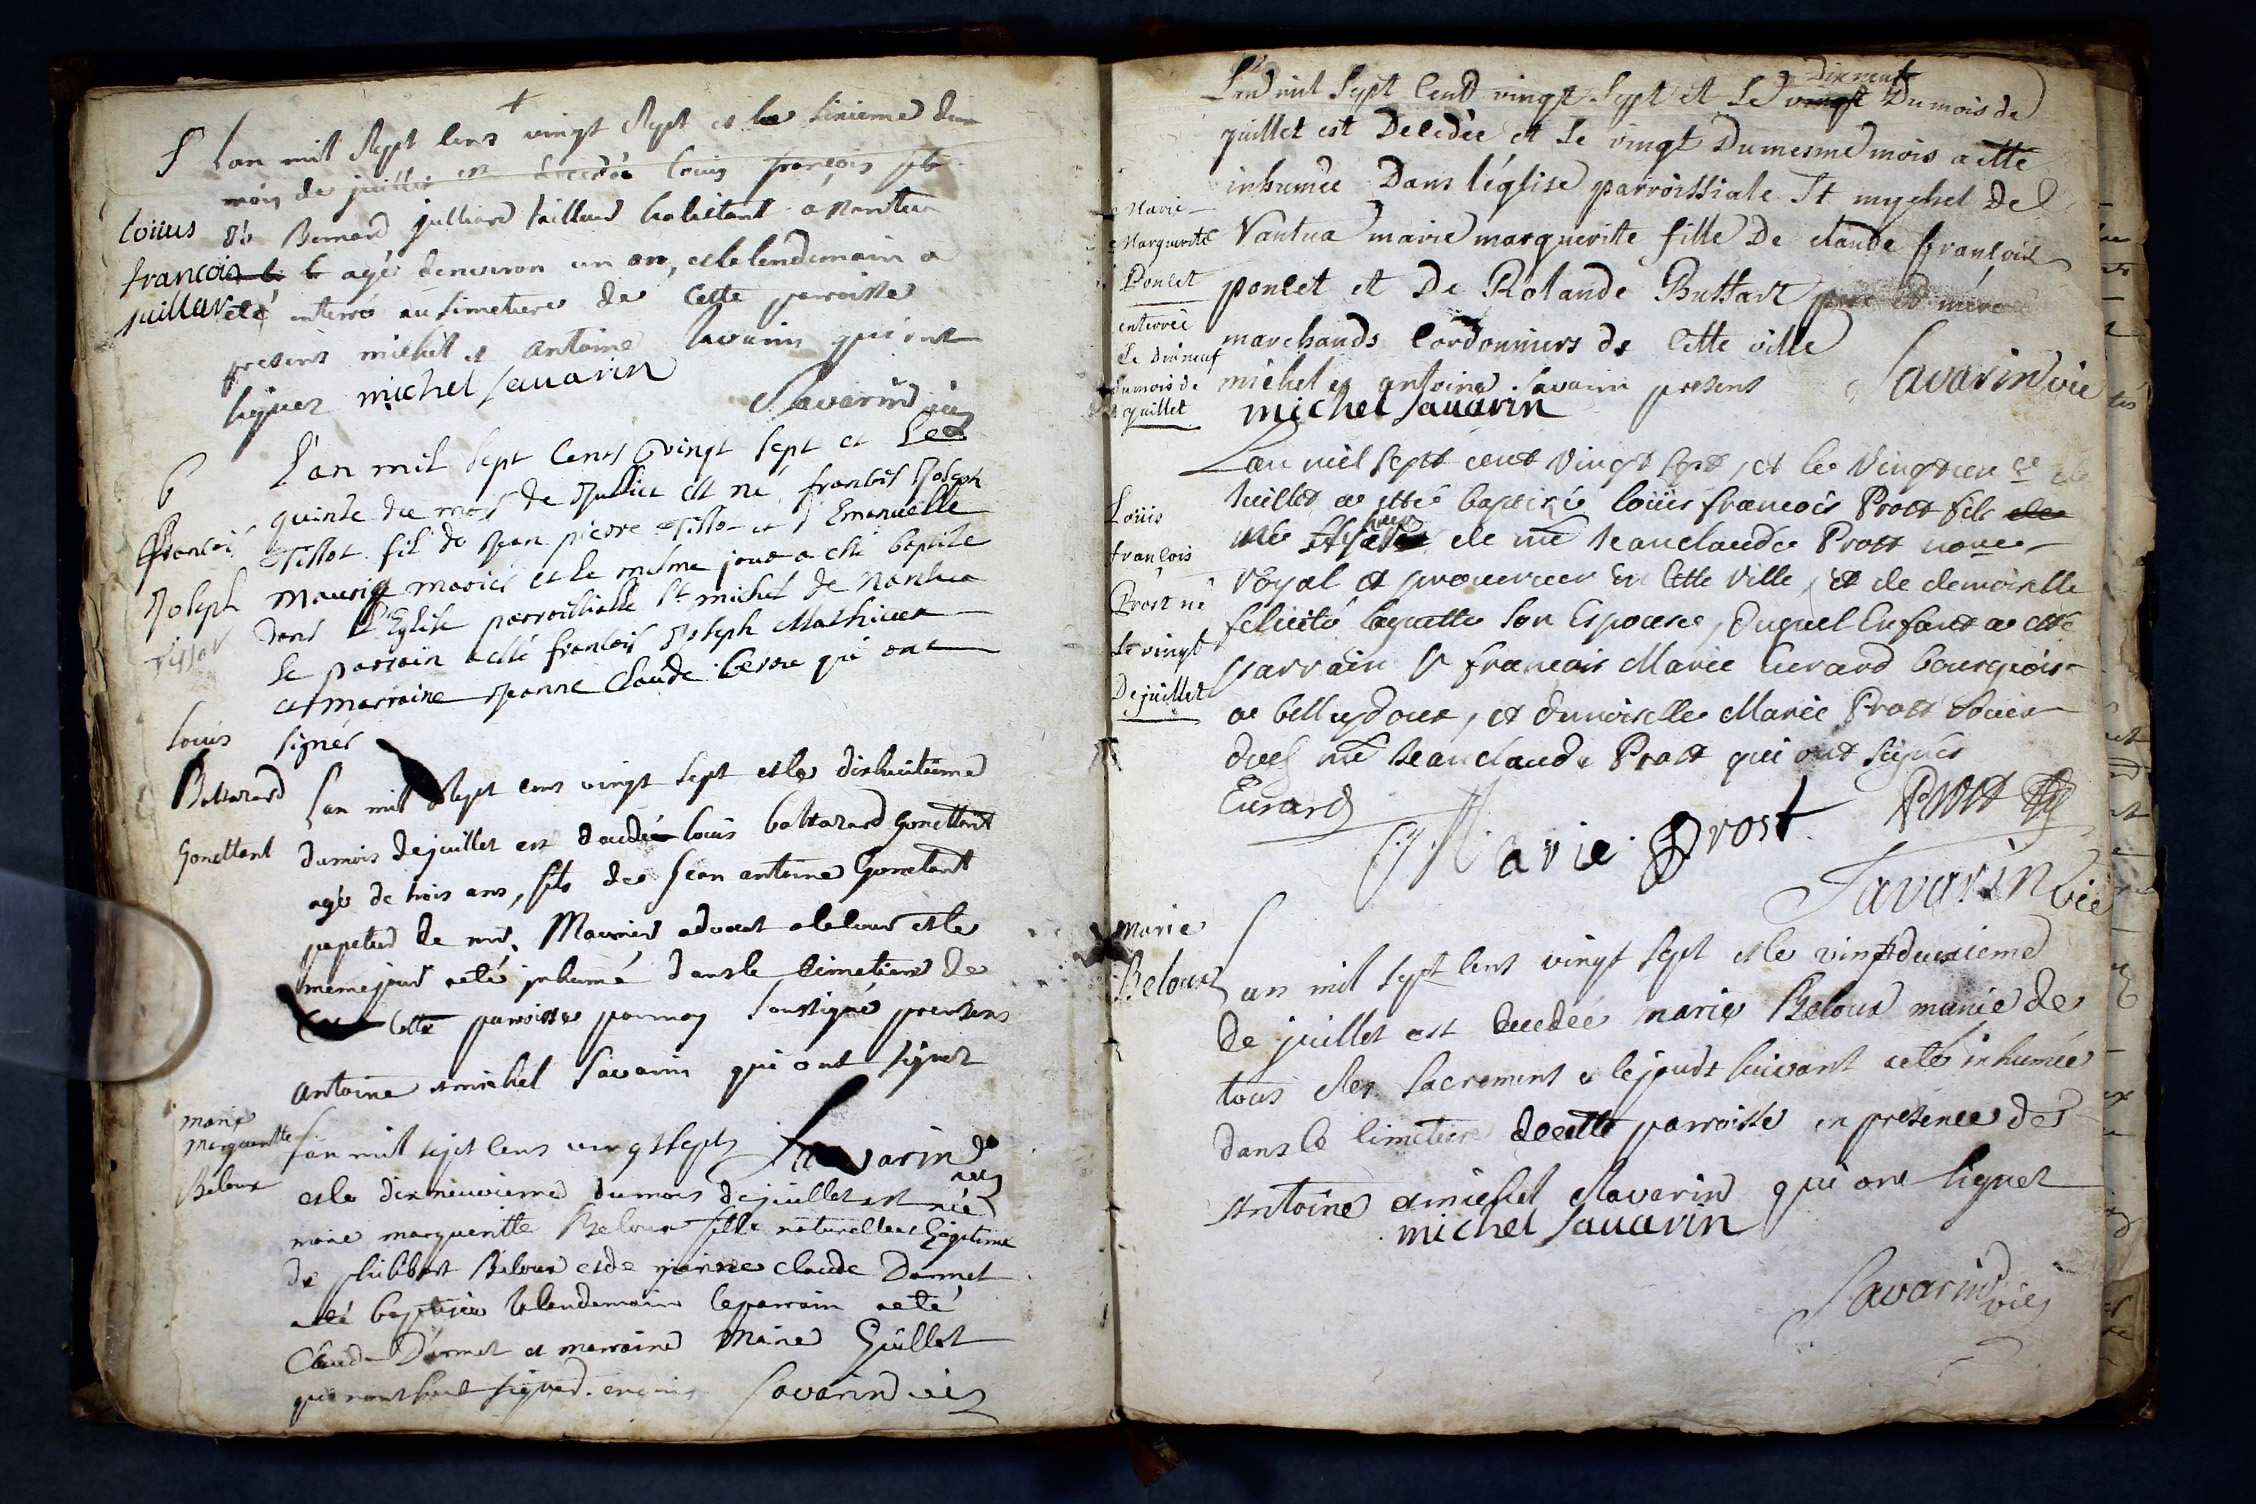 +
S
Lan mil Sept Cens vingt Sept et le sixieme du
mois de juillet est decedé Louis françois fils
Loüis
françois
juillar
de Bernard julliard tailleur habitant a Nantua
agé denviron un an, et le lendemain a
eté enterré au simetiere de Cette paroisse
presens michel et Antoine Savarin qui ont
signez michel Sauarin
Savarin vic
b
françois
Joseph
Tissot
L'an mil sept Cents vingt Sept et Le
quinse du mois de Juillet est né francois Joseph
Tissot fils de Jean pierre Tissot et d'Emanuelle
mauris mariés et le mesme jour a esté baptisé
dans L'Eglise parroissialle St michel de nantua
Le parrain a esté francois Joseph Mathieu
et marraine Jeanne Claude Besse qui ont
signés
Louis
Baltazard
Gonettant
Lan mil Sept cens vingt sept et le dixhuitieme
du mois de juillet est decedé Louis baltazard Gonettant
agé de trois ans, fils de Jean antoine Gonetant
papetier de mr. Maunier advocat a la Cour et le
meme jour a eté inhumé dans le cimetiere de
Cette paroisse par moy soussigné presens
Antoine et michel Savarin qui ont signez
Savarin
vic
marie
marguerite
Beloux
Lan mil sept cens vingtsept
et le dixneuvieme du mois de juillet est née
marie marguerite Beloux fille naturelle et légitime
de philibert Beloux et de jeanne claude Darmet
a eté baptisée le lendemain le parrain a eté
Claude Darmet et marraine Marie Guillet
qui n'ont pas signé enquis Savarin vic
Dixneuf
Lan mil Sept Cent vingt Sept et Le vingt Du mois de
juillet est Decedée et Le vingt Du mesme mois a ette
inhumée Dans l'église parroissiale St mychel De
Nantua marie marguerite fille De claude francois
poncet et De Rolande Bussart pere et mére
marchands Cordonniers de Cette ville
michel et antoine Savarin presens Savarin vic
michel Sauarin
Marie
Marguerite
Poncet
enterrée
Le Dixneuf
Du mois de
juillet
Lan mil Sept cent Vingt Sept, et le Vingt un e de
Juillet a etté baptisé loüis francois Prost fils
né hier de me Jeanclaude Prost notre
Royal et procureur En Cette Ville, et de demoiselle
felicité Son Espouse, Duquel Enfant a etté
parrain Sr francois Marie Eurard bourgeois
a bellydoux, et demoiselle Marie Prost Soeur
dud me Jeanclaude Prost qui ont Signés
Eurard
Marie Prost
Prost
Savarin vic
Loüis
françois
Prost né
le vingt
De juillet
Marie
Beloux
Lan mil sept cens vingt sept et le vingtdeuxieme
de juillet est decedée marie Beloux munie de
tous les Sacremens et le jour suivant a eté inhumée
dans le cimetiere de cette parroisse en presence de
Antoine et michel Savarin qui ont signez
michel Sauarin
Savarin vic